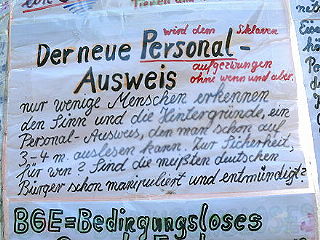 wird dem Sklaven
Der neue Personal-
aufgezwungen
Ausweis
ohne wenn und aber.
nur wenige Menschen erkennen
den Sinn und die Hintergründe, ein
Personal-Ausweis, den man schon auf
3-4 m. auslesen kann. Zur Sicherheit,
für wen? Sind die meysten deutschen
Bürger schon manipuliert und entmündigt?
BGE=Bedingungsloses